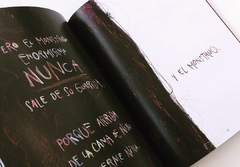 ERO EL MONSTRUO
ENORMÍSIMO
NUNCA
SALE DE SU GUARIDA
PORQUE ARRIBA
DE LA CAMA
Y EL MONSTRUO...